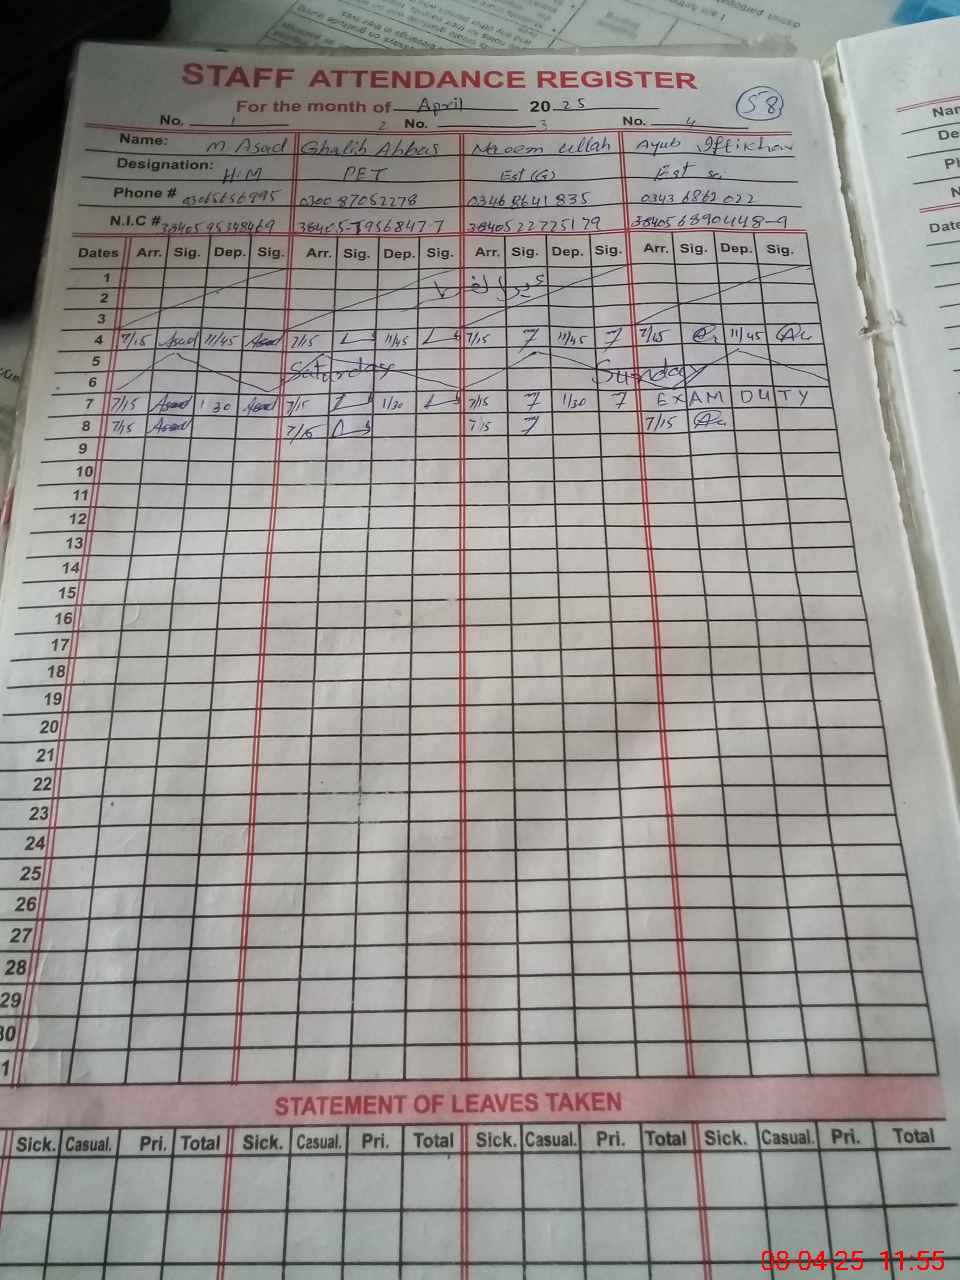 STAFF ATTENDANCE REGISTER
For the month of April 2025
58
No. 1 2 No. 3 No. 4
Name: M Asad Ghalib Abbas Naeem ullah Ayub Iftikhar
Designation: H.M PET Est (G) Est sc.
Phone # 03065656995 0300 87052278 03468641835 0343 6862022
N.I.C # 38405 3840522725179 384056890448-9
Dates Arr. Sig. Dep. Sig. Arr. Sig. Dep. Sig. Arr. Sig. Dep. Sig. Arr. Sig. Dep. Sig.
1
2
3
4 7/15 Asad 11/45 Asad 7/15 11/45 7/15 11/45 7/15 11/45
5 Saturday Sunday
6
7 7/15 Asad 1 30 Asad 7/15 1/30 7/15 1/30 EXAM DUTY
8 7/15 Asad 7/15 7/15 7/15
9
10
11
12
13
14
15
16
17
18
19
20
21
22
23
24
25
26
27
28
29
30
1
STATEMENT OF LEAVES TAKEN
Sick. Casual. Pri. Total Sick. Casual. Pri. Total Sick. Casual. Pri. Total Sick. Casual. Pri. Total
Nam
De
Ph
N
Date
08-04-25 11:55